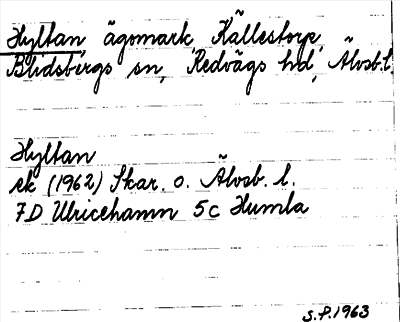 Hyltan, ägomark, Källestorp,
Blidsbergs sn, Redvägs hd, Älvsb. l.
Hyltan
ek (1962) Skar. o. Älvsb. l.
7D Ulricehamn 5c Humla
S.P. 1963